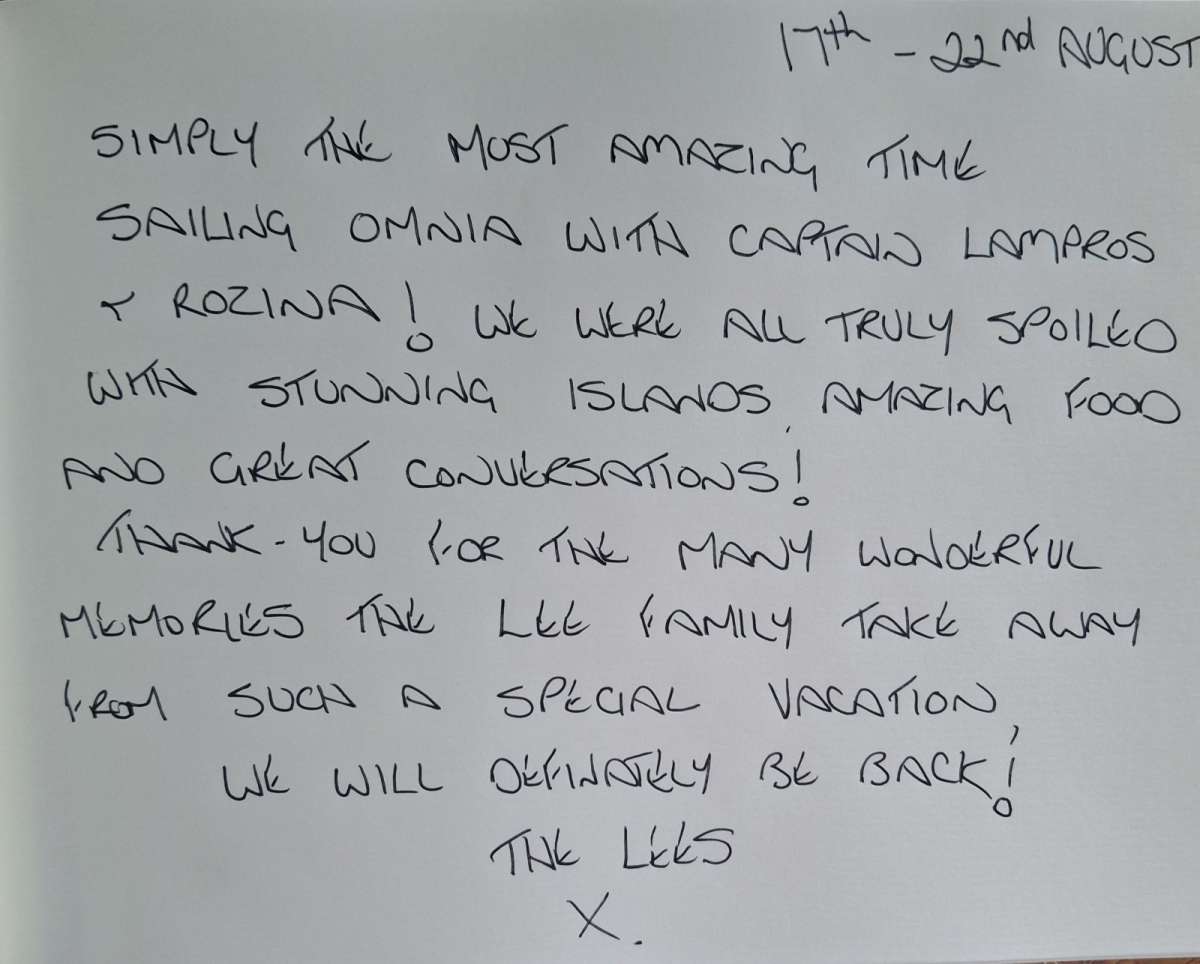 17th - 22nd AUGUST
SIMPLY THE MOST AMAZING TIME
SAILING OMNIA WITH CAPTAIN LAMPROS
& ROZINA! WE WERE ALL TRULY SPOILED
WITH STUNNING ISLANDS, AMAZING FOOD
AND GREAT CONVERSATIONS!
THANK-YOU FOR THE MANY WONDERFUL
MEMORIES THE LEE FAMILY TAKE AWAY
FROM SUCH A SPECIAL VACATION,
WE WILL DEFINATELY BE BACK!
THE LEES
X.